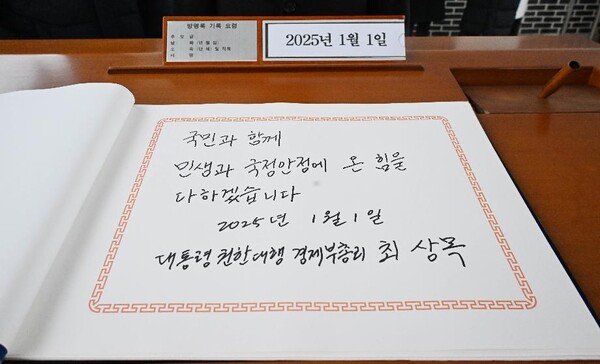 방명록 기록 요령
2025년 1월 1일
국민과 함께
민생과 국정안정에 온 힘을
다하겠습니다
2025년 1월 1일
대통령 권한대행 경제부총리 최 상목